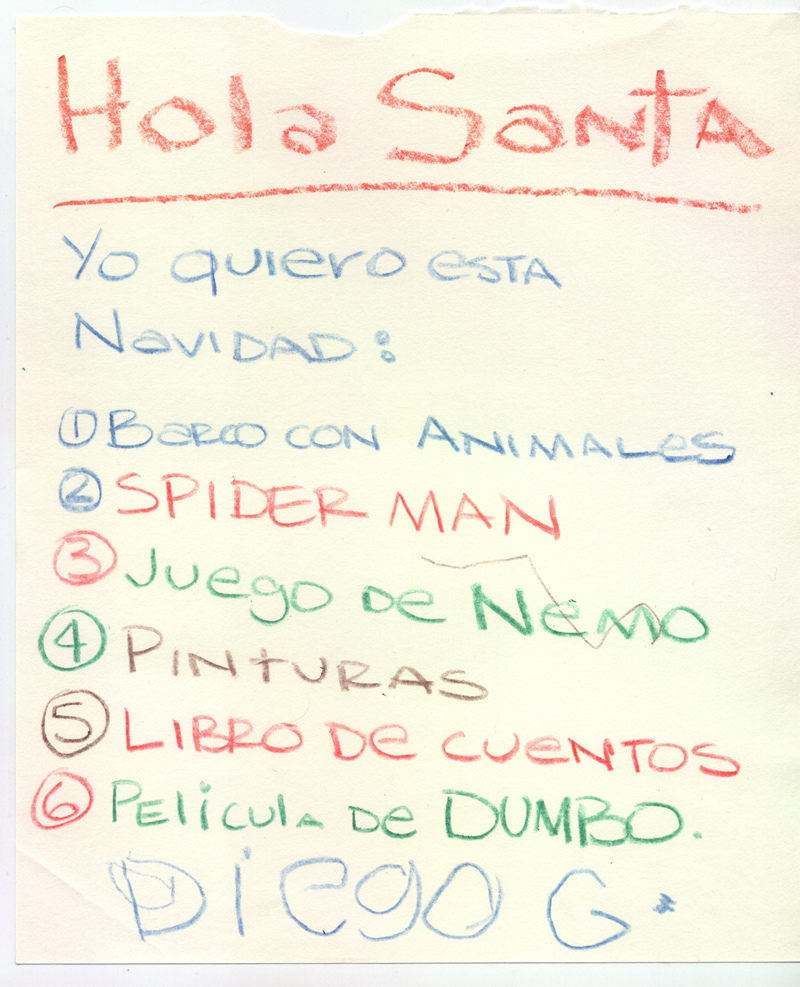 Hola Santa
Yo quiero esta
Navidad:
① Barco con Animales
② SPIDER MAN
③ Juego de Nemo
④ PINTURAS
⑤ LIBRO De cuentos
⑥ Película de DUMBO.
Diego G.